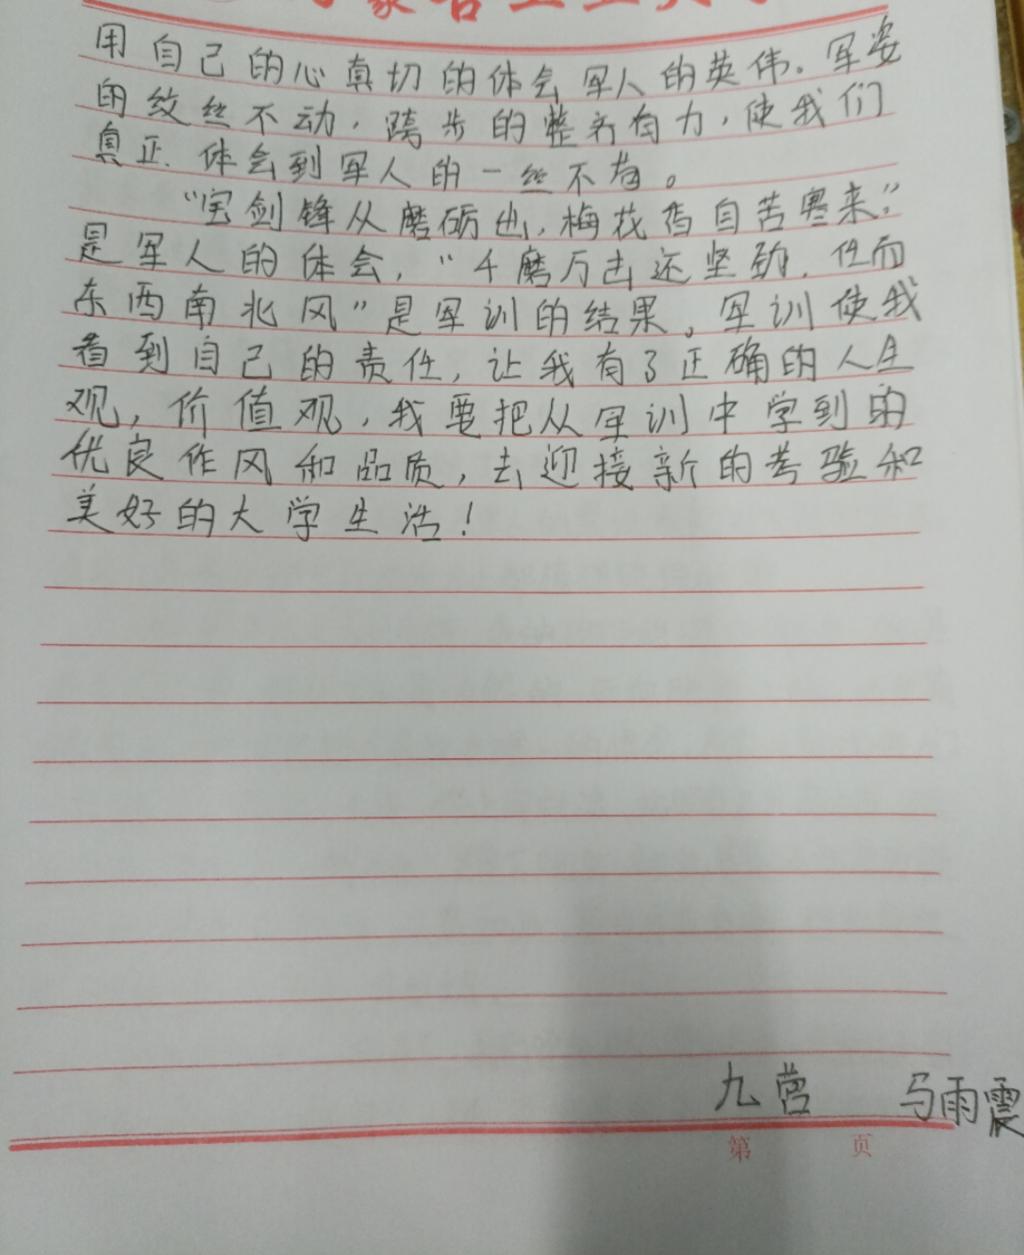 用自己的心真切的体会军人的英伟。军姿
的纹丝不动，跨步的整齐有力，使我们
真正体会到军人的一丝不苟。
“宝剑锋从磨砺出，梅花香自苦寒来”
是军人的体会，“千磨万击还坚劲，任而
东西南北风”是军训的结果。军训使我
看到自己的责任，让我有了正确的人生
观，价值观，我要把从军训中学到的
优良作风和品质，去迎接新的考验和
美好的大学生活！
九营 马雨震
第 页